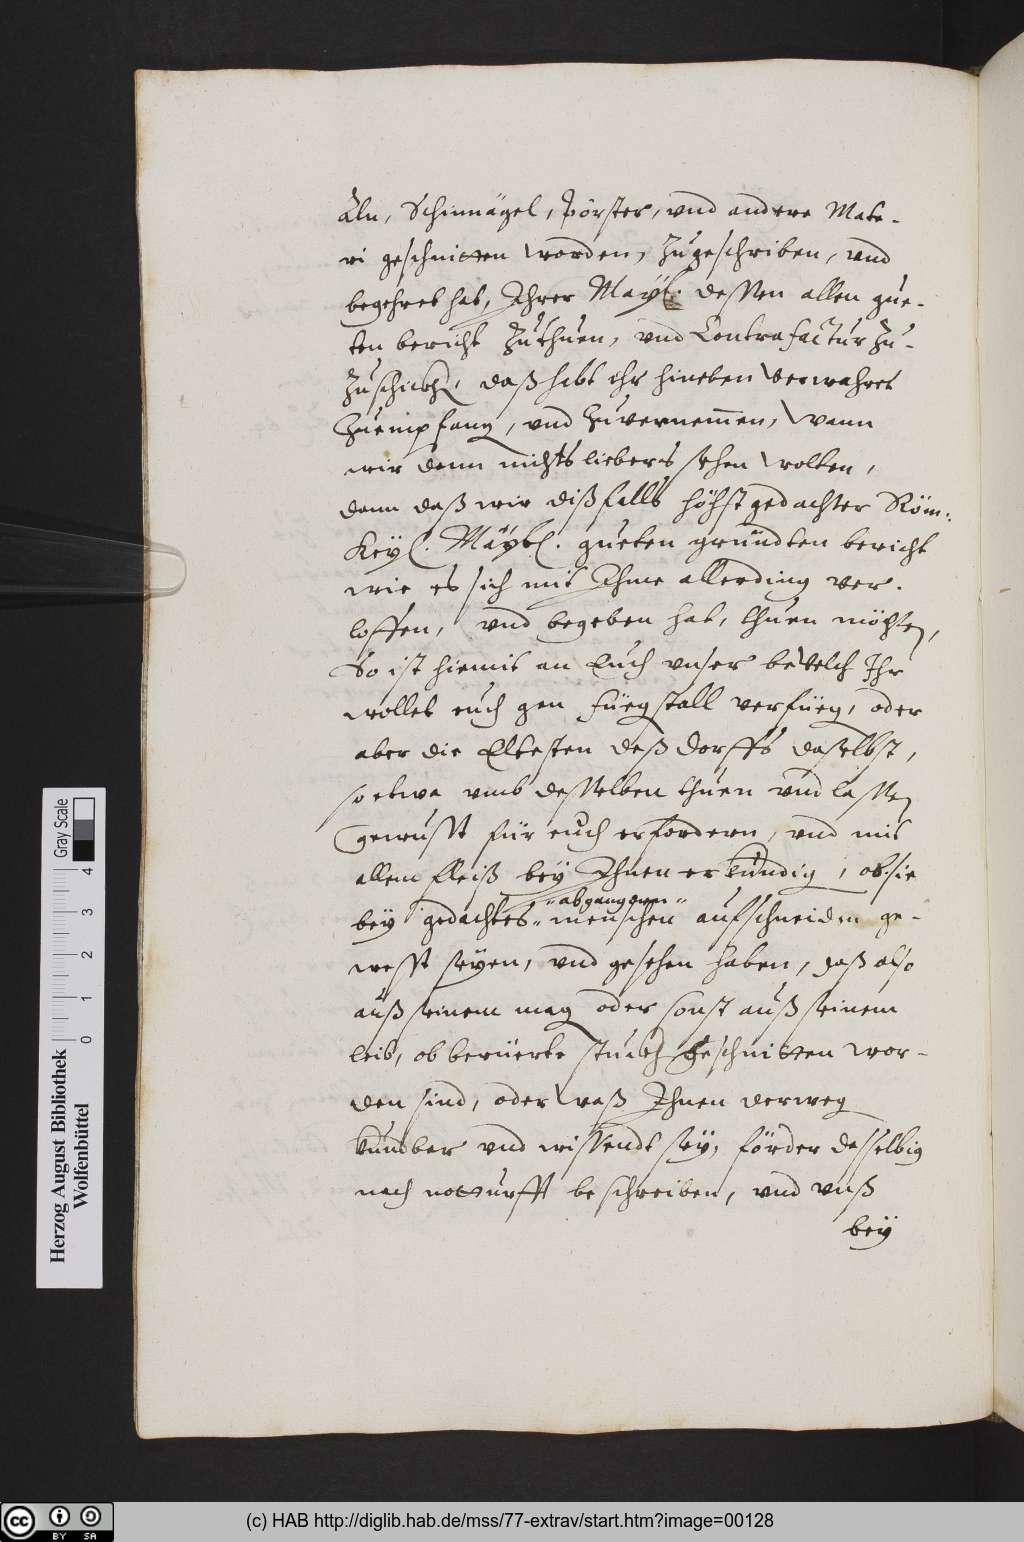 Äln, Schinnägel, pörster, vnd andere Mate-
ri geschnitten worden, Zugeschriben, vnd
begehret hat, Ihrer Maytt. dessen allen gue-
ten bericht Zuthuen, vnd Contrafactur Zu-
Zuschickh, daß habt ihr hineben verwahret
Zuempfang, vnd Zuvernemen, Wann
wir denn nichts liebers sehen wolten,
dann daß wir dißfalls höchstgedachter Röm:
Key. Maytt. gueten grundten bericht
wie es sich mit Ihme allerding ver-
loffen, vnd begeben hat, thuen möchten,
So ist hiemit an Euch vnser bevelch Ihr
wollet euch gen füegstall verfüeg, oder
aber die Eltesten deß dorffs daselbst,
so etwa vmb desselben thuen vnd lassen
gewusst für euch erfordern, vnd mit
allem fleiß bey Ihnen erkündig, ob sie
bey gedachtes" "abgangnen" menschen aufschneiden ge-
wesst seyen, vnd gesehen haben, daß also
auß seinem mag oder sonst auß seinem
leib, ob berüerte stuckh geschnitten wor-
den sind, oder waß Ihnen derweg
kundbar vnd wissendt sey, förder desselbig
nach notturfft beschreiben, vnd vnß
bey
Herzog August Bibliothek
Wolfenbüttel
0 1 2 3 4
Gray Scale
cc BY SA
(c) HAB http://diglib.hab.de/mss/77-extrav/start.htm?image=00128